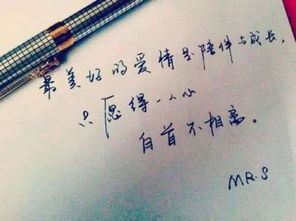 最美好的爱情是陪伴与成长，
只愿得一人心
白首不相离。
MR.S